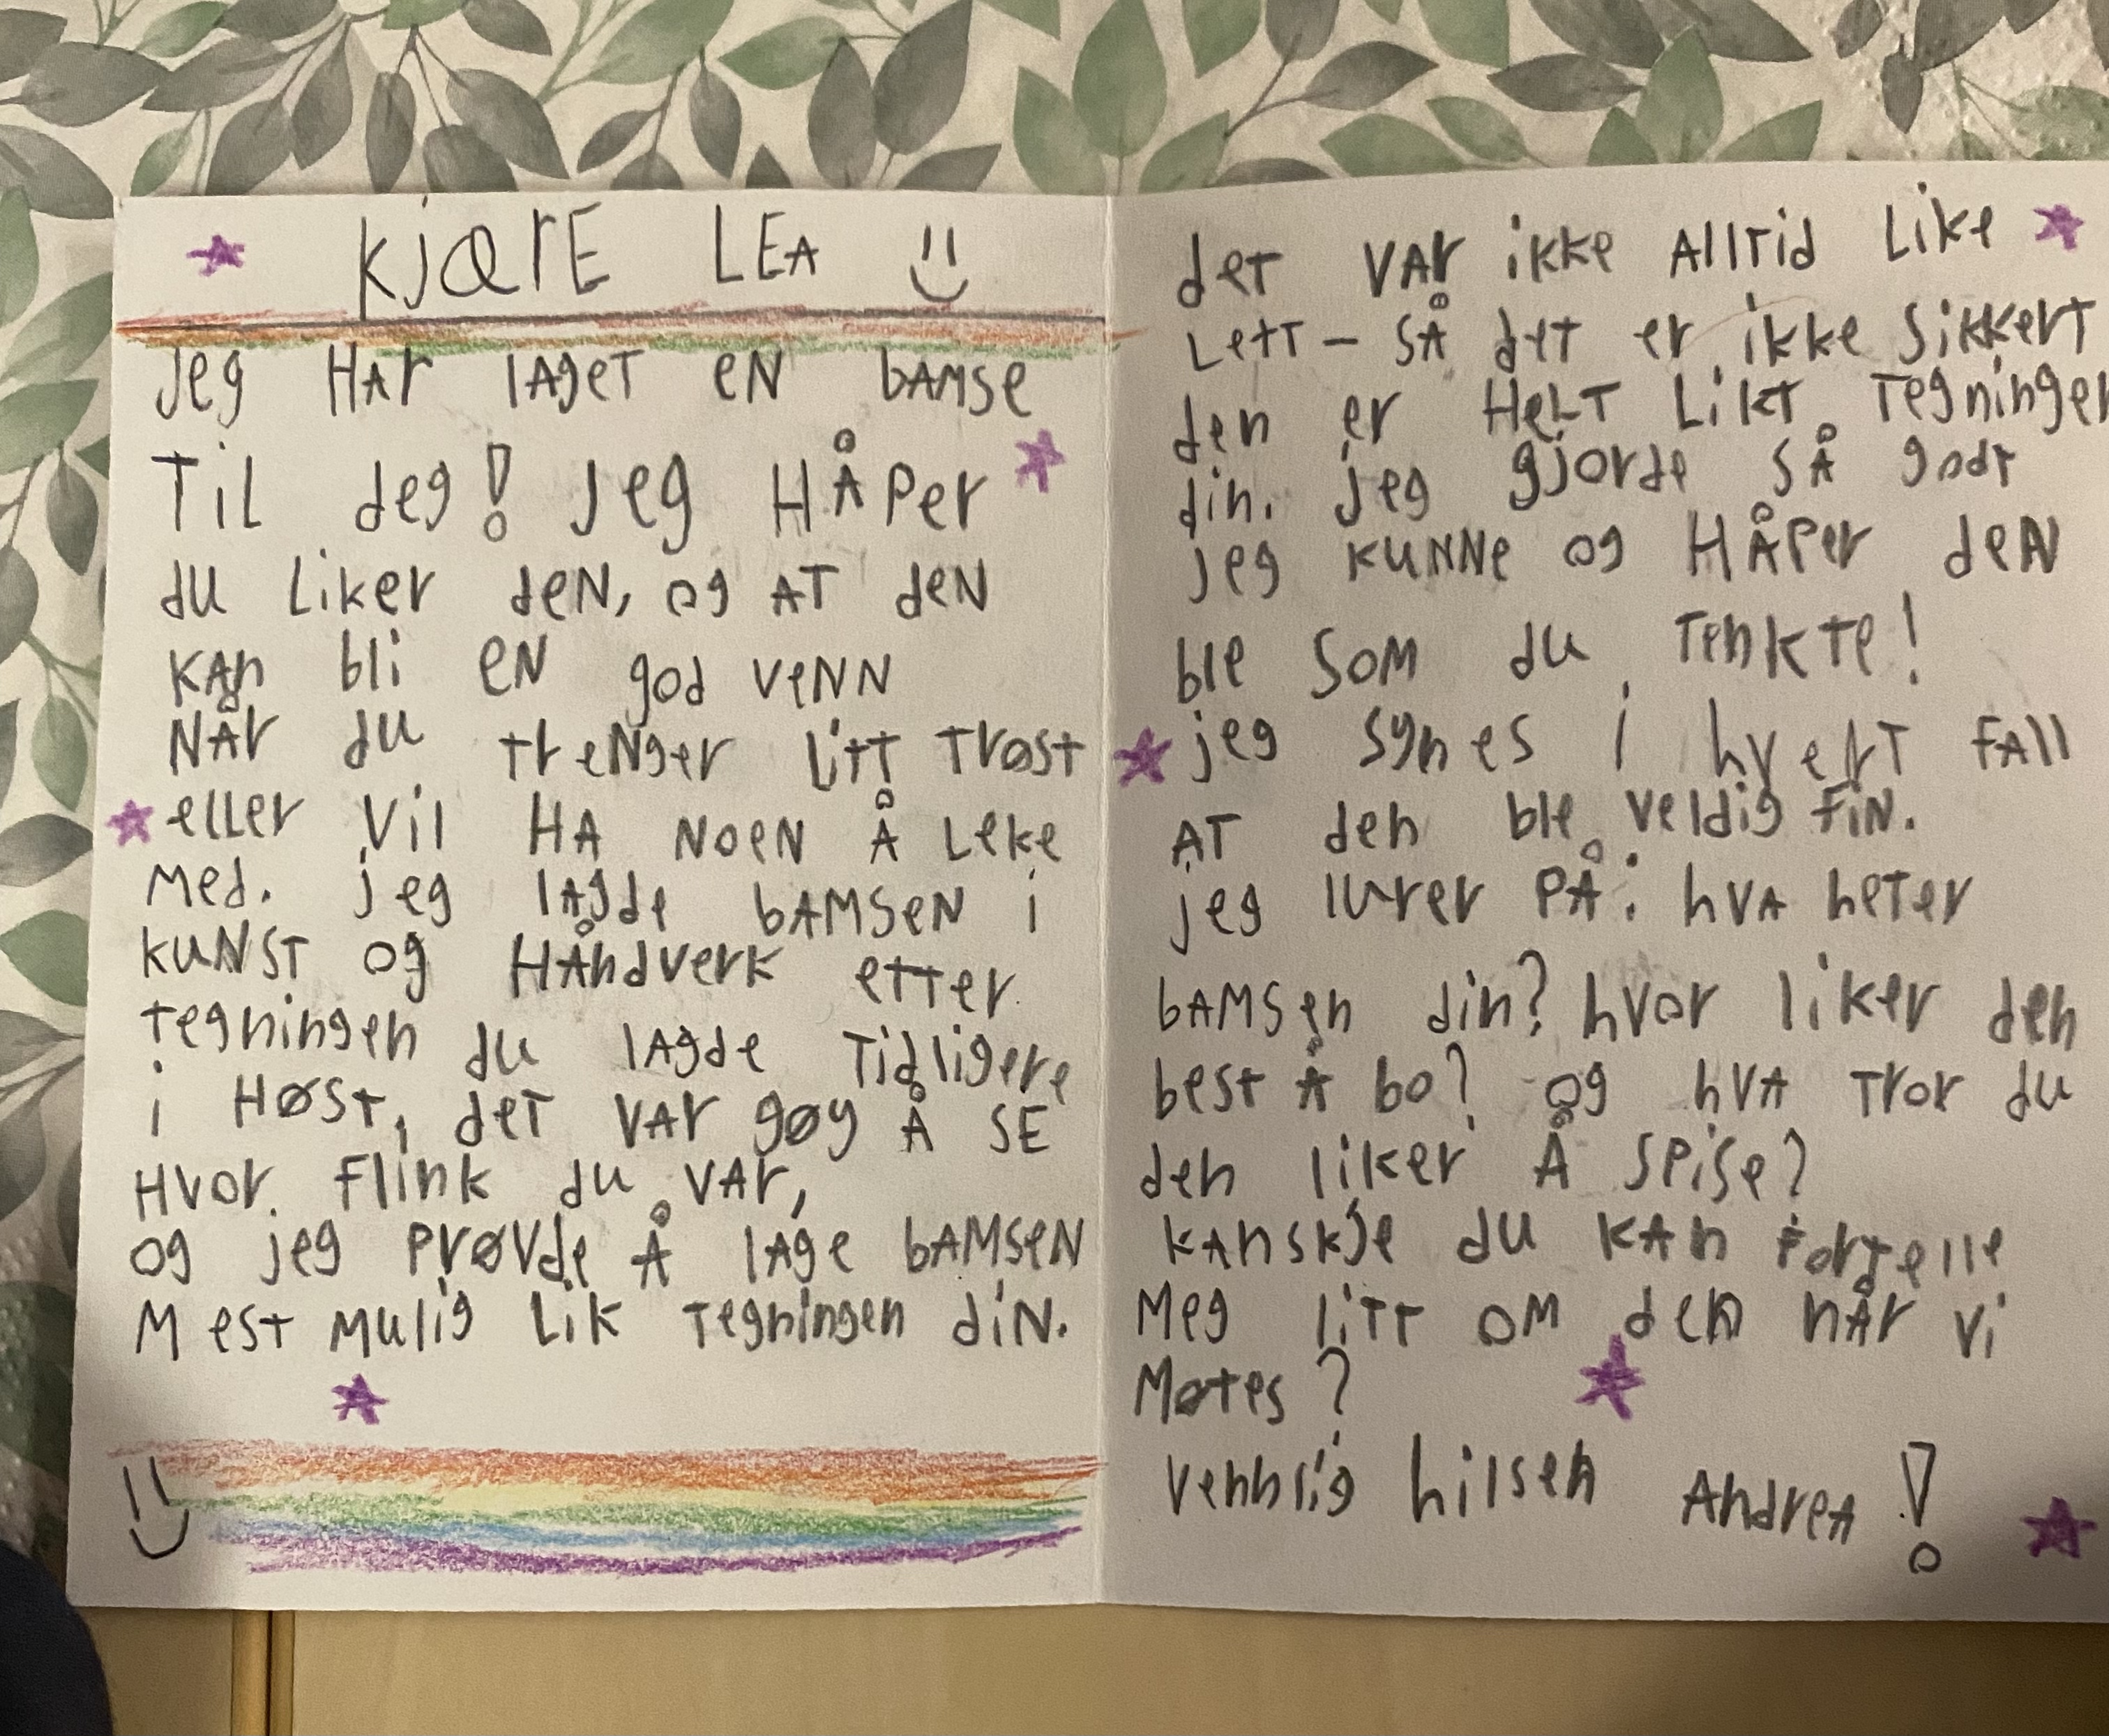 KJÆRE LEA
jeg HAr lAgeT eN bAMse
Til deg! jeg HÅPer
du liker deN, og AT deN
KAn bli eN god veNN
NÅr du treNger litt Trøst
eller Vil HA NoeN Å Leke
Med. jeg lAgde bAMseN i
KUNST og HÅndverk etter
tegningen du lAgde Tidligere
i HøsT, deT VAr gøy Å SE
HVor Flink du VAr,
og jeg Prøvde Å lAge bAMseN
Mest Mulig Lik Tegningen diN.
deT VAr ikke AllTid Like
LeTT - SÅ deT er ikke SikkerT
den er HeLT LikT Tegningen
din. jeg gjorde SÅ godT
jeg KUNNe og HÅPer deN
ble SoM du Tenkte!
jeg synes i hverT FAll
AT den ble Veldig FiN.
jeg lurer PÅ: hVA heTer
bAMsen din? hvor liker den
best Å bo? og hVA Tror du
den liker Å SPise?
KAnskje du KAn ForTelle
Meg liTT OM den nÅr Vi
Møtes?
Vennlig hilsen AndreA!